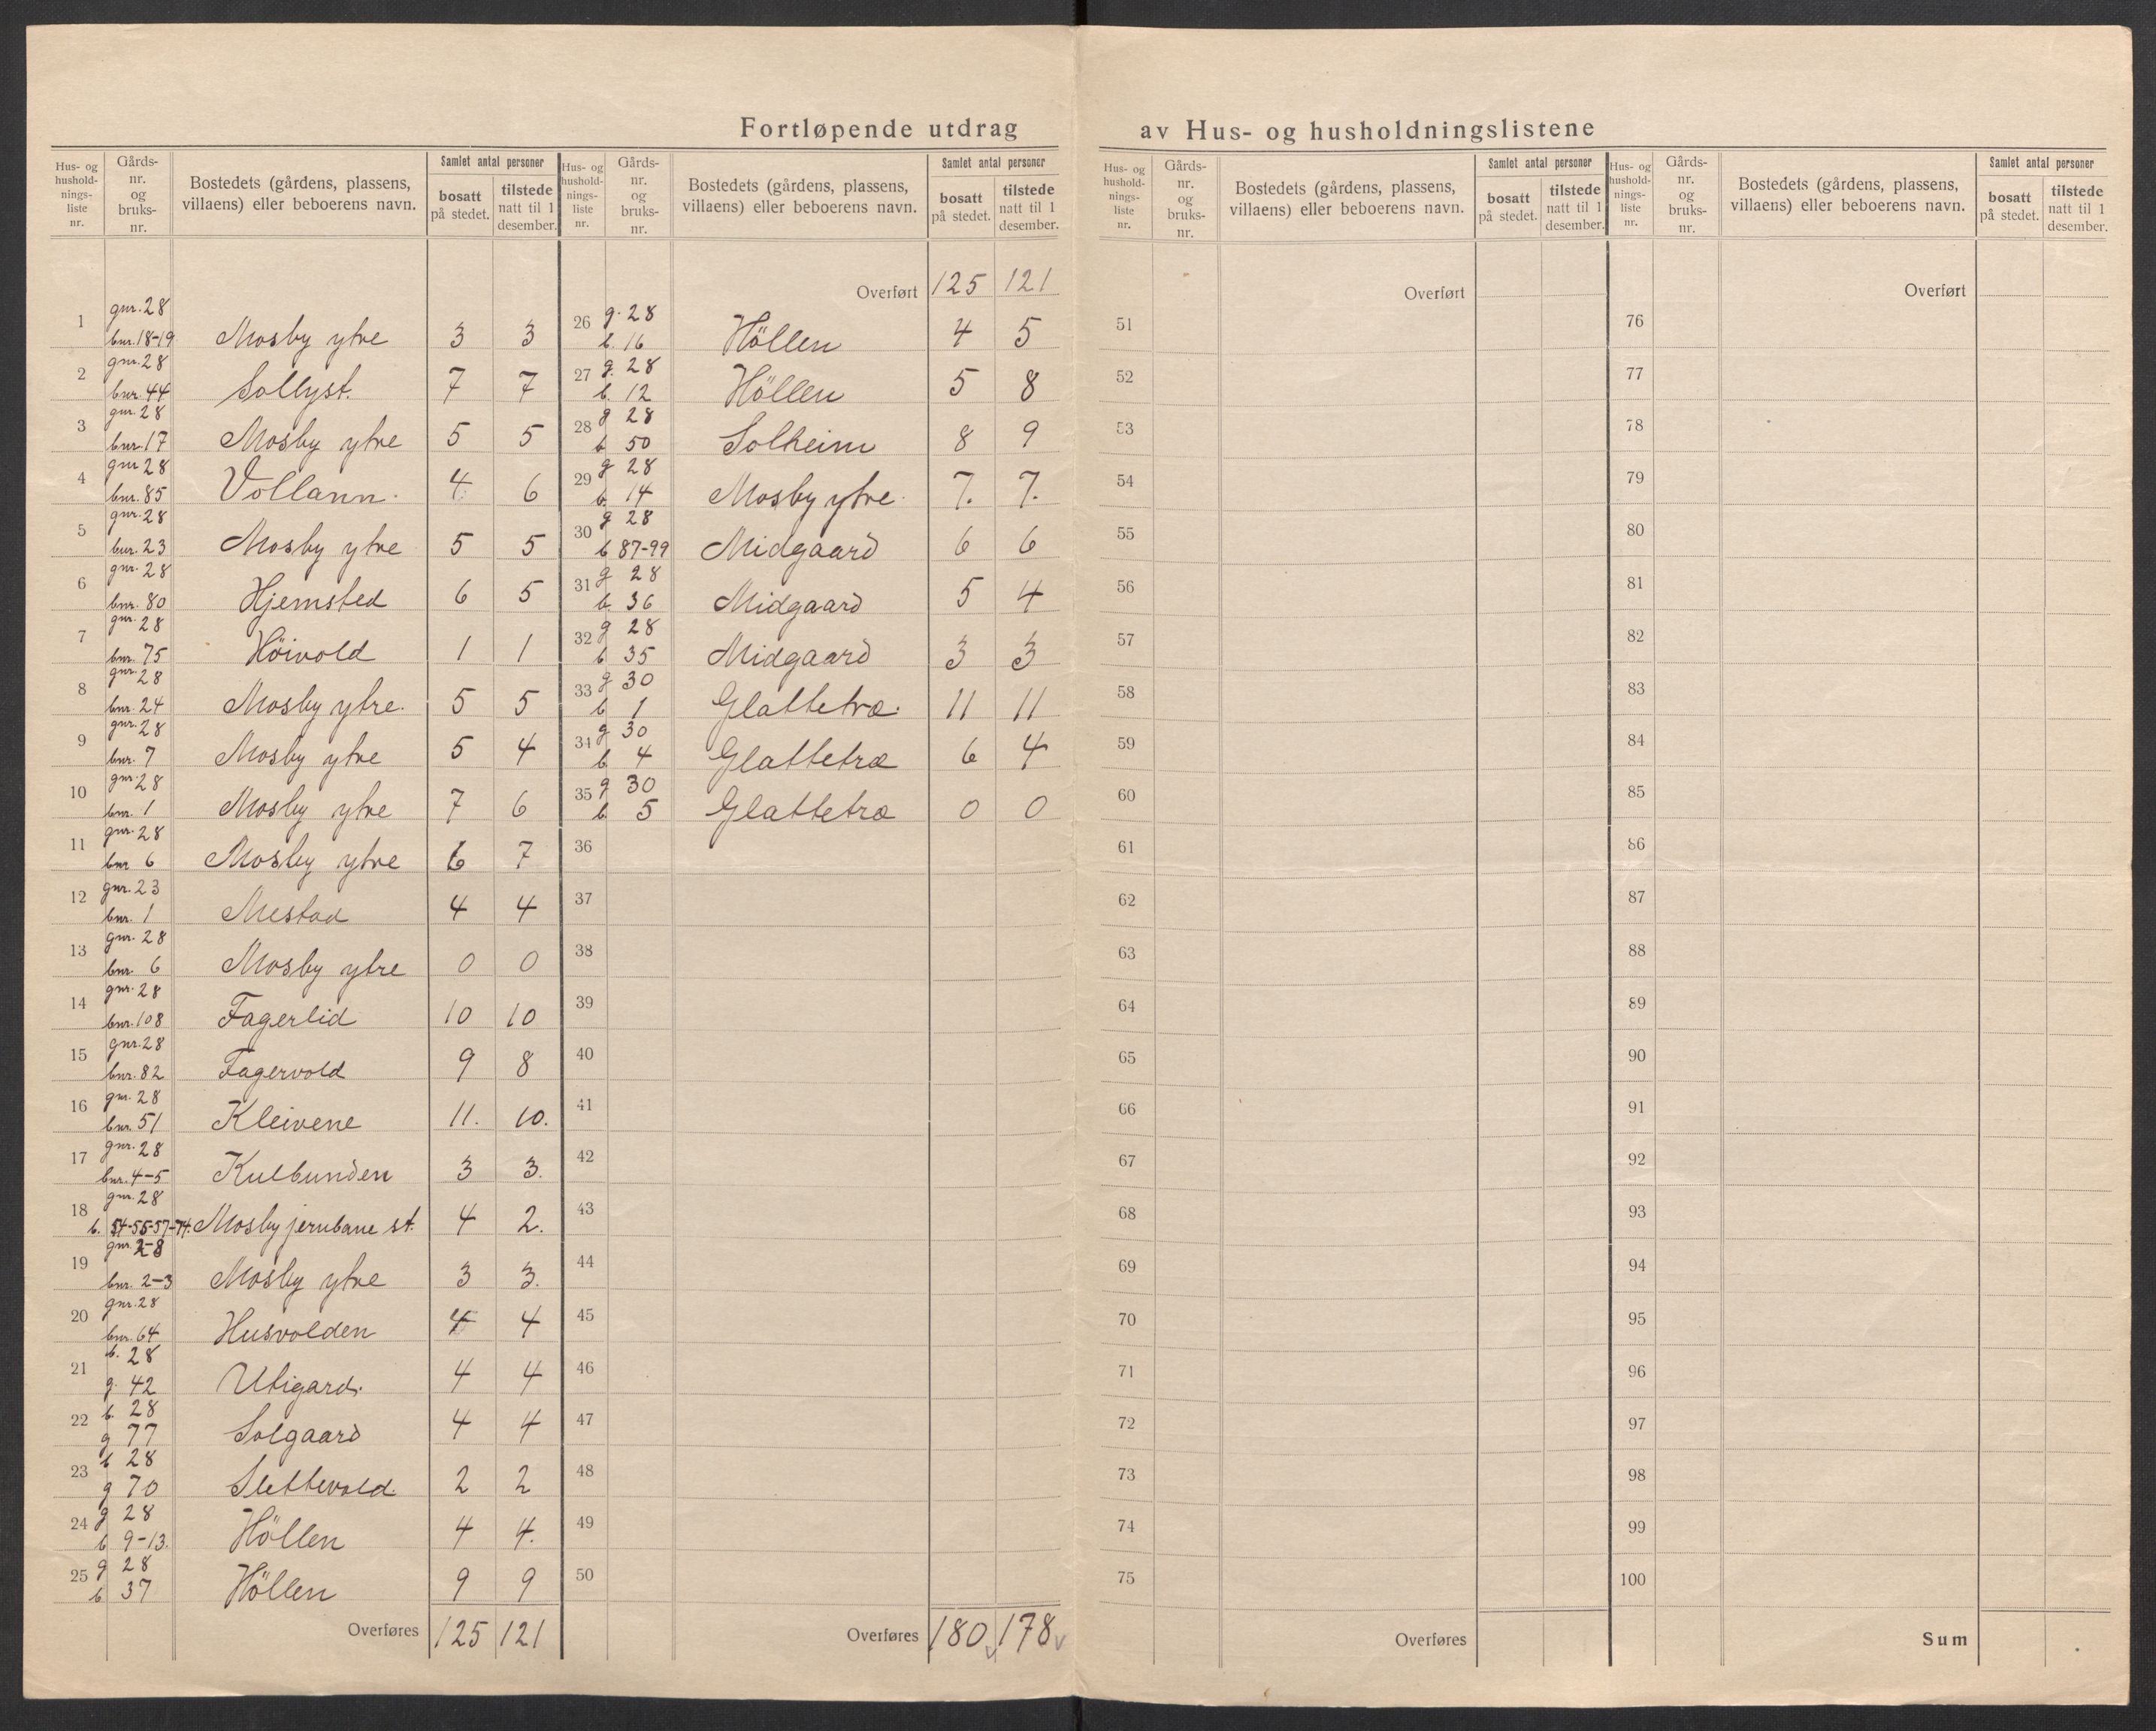 Fortløpende utdrag av Hus- og husholdningslistene
Hus- og hushold- nings- liste nr. | Gårds- nr. og bruks- nr. | Bostedets (gårdens, plassens, villaens) eller beboerens navn. | Samlet antal personer | bosatt på stedet. | tilstede natt til 1 desember.
1 gnr. 28 bnr. 18-19 Mosby ytre 3 3
2 gnr. 28 bnr. 44 Sollyst. 7 7
3 gnr 28 bnr. 17 Mosby ytre 5 5
4 gnr 28 bnr. 85 Vollann. 4 6
5 gnr. 28 bnr. 23 Mosby ytre 5 5
6 gnr. 28 bnr. 80 Hjemsted 6 5
7 gnr. 28 bnr. 75 Höivold 1 1
8 gnr. 28 bnr. 24 Mosby ytre. 5 5
9 gnr. 28 bnr. 7 Mosby ytre 5 4
10 gnr. 28 bnr. 1 Mosby ytre 7 6
11 gnr. 28 bnr 6 Mosby ytre 6 7
12 gnr. 23 bnr. 1 Mestad 4 4
13 gnr. 28 bnr. 6 Mosby ytre 0 0
14 gnr. 28 bnr. 108 Fagerlid 10 10
15 gnr. 28 bnr. 82 Fagervold 9 8
16 gnr. 28 bnr. 51 Kleivene 11. 10.
17 gnr. 28 bnr. 4-5 Kulbunden 3 3.
18 gnr. 28 b. 54-55-57-74. Mosby jernbane st. 4 2.
19 gnr. 28 bnr. 2-3 Mosby ytre 3 3.
20 gnr. 28 bnr. 64 Husvolden 4 4
21 b. 28 g. 42 Utigard. 4 4
22 b. 28 g 77 Solgaard 4 4
23 b 28 g 70 Slettevold. 2 2
24 g 28 b 9-13. Höllen 4 4.
25 g 28 b 37 Höllen 9 9
Overføres 125 121
Hus- og hushold- nings- liste nr. | Gårds- nr. og bruks- nr. | Bostedets (gårdens, plassens, villaens) eller beboerens navn. | Samlet antal personer | bosatt på stedet. | tilstede natt til 1 desember.
Overført 125 121
26 g. 28 b. 16 Höllen 4 5
27 g. 28 b. 12 Höllen 5 8
28 g 28 b 50 Solheim 8 9
29 g 28 b. 14 Mosby ytre. 7. 7.
30 g 28 b 87-99 Midgaard 6 6
31 g 28 b. 36 Midgaard 5 4
32 g 28 b 35 Midgaard 3 3
33 g 30 b 1 Glattetræ. 11 11
34 g 30 b 4 Glattetræ 6 4
35 g 30 b. 5 Glattetræ 0 0
36
37
38
39
40
41
42
43
44
45
46
47
48
49
50
Overføres 180 178
Hus- og hushold- nings- liste nr. | Gårds- nr. og bruks- nr. | Bostedets (gårdens, plassens, villaens) eller beboerens navn. | Samlet antal personer | bosatt på stedet. | tilstede natt til 1 desember.
Overført
51
52
53
54
55
56
57
58
59
60
61
62
63
64
65
66
67
68
69
70
71
72
73
74
75
Overføres
Hus- og hushold- nings- liste nr. | Gårds- nr. og bruks- nr. | Bostedets (gårdens, plassens, villaens) eller beboerens navn. | Samlet antal personer | bosatt på stedet. | tilstede natt til 1 desember.
Overført
76
77
78
79
80
81
82
83
84
85
86
87
88
89
90
91
92
93
94
95
96
97
98
99
100
Sum